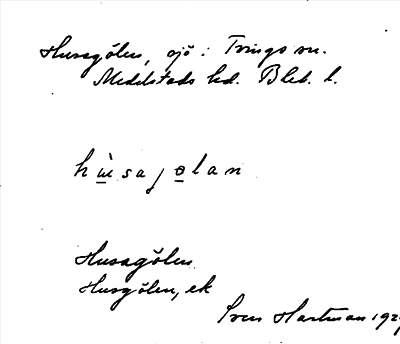 Husagölen, sjö: Tvings sn.
Medelstads hd. Blek. l.
hu̠̇sajo̠lan
Husagölen
Husgölen, ek
Sven Hartman 192